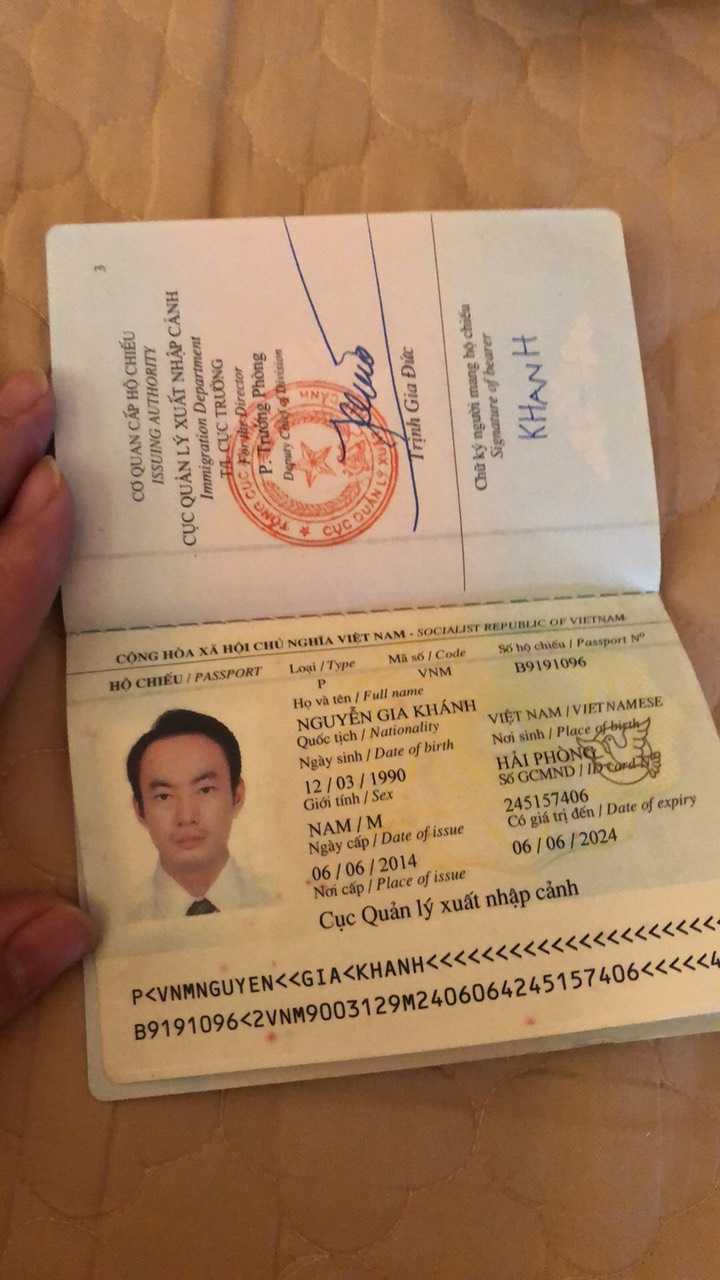 3
CƠ QUAN CẤP HỘ CHIẾU
ISSUING AUTHORITY
CỤC QUẢN LÝ XUẤT NHẬP CẢNH
Immigration Department
TL. CỤC TRƯỞNG
For the Director
P. Trưởng Phòng
Deputy Chief of Division
TỔNG CỤC
CỤC QUẢN LÝ XUẤT
Trịnh Gia Đức
Chữ ký người mang hộ chiếu
Signature of bearer
KHANH
CỘNG HÒA XÃ HỘI CHỦ NGHĨA VIỆT NAM - SOCIALIST REPUBLIC OF VIETNAM
HỘ CHIẾU / PASSPORT Loại / Type Mã số / Code Số hộ chiếu / Passport Nº
P VNM B9191096
Họ và tên / Full name
NGUYỄN GIA KHÁNH
Quốc tịch / Nationality
VIỆT NAM / VIETNAMESE
Ngày sinh / Date of birth Nơi sinh / Place of birth
12 / 03 / 1990 HẢI PHÒNG
Giới tính / Sex Số GCMND / ID card Nº
NAM / M 245157406
Ngày cấp / Date of issue Có giá trị đến / Date of expiry
06 / 06 / 2014 06 / 06 / 2024
Nơi cấp / Place of issue
Cục Quản lý xuất nhập cảnh
P<VNMNGUYEN<<GIA<KHANH<<<<<<<<<<<<<<<<<<<<<<
B9191096<2VNM9003129M2406064245157406<<<<<4